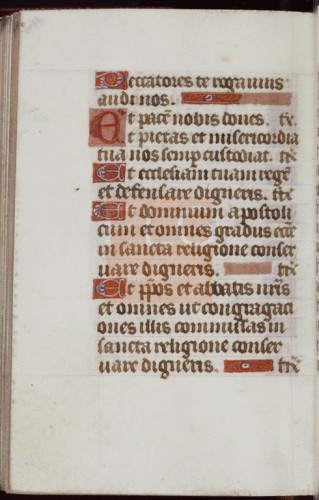 Peccatores te rogamus
audi nos.
Et pacē nobis dones. te
Et pietas et misericordia
tua nos semp custodiat. te
Et ecclesiam tuam regē
et defensare digneris. te
Et domnum apostoli
cum et omnes gradus ecce
in sancta religione conser
uare digneris. te
Et pp̄os et abbatis nr̄is
et omnes ut congragaci
ones illis commissas in
sancta religione conser
uare digneris. te